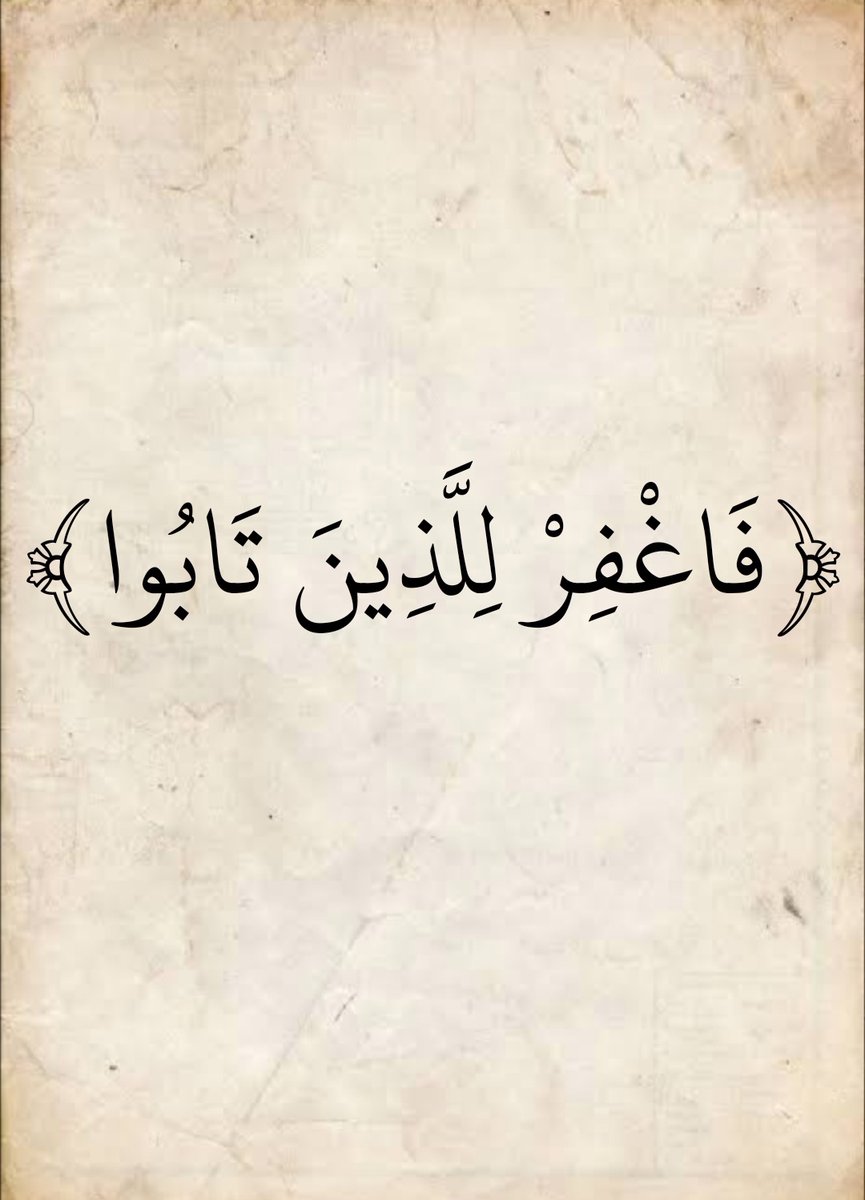 ﴿فَاغْفِرْ لِلَّذِينَ تَابُوا﴾